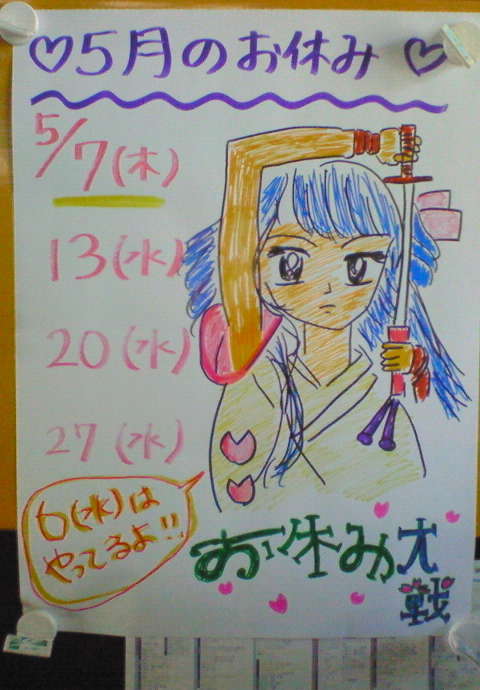 ♡5月のお休み♡
5/7(木)
13(水)
20(水)
27(水)
6(水)は
やってるよ!!
お休み大戦